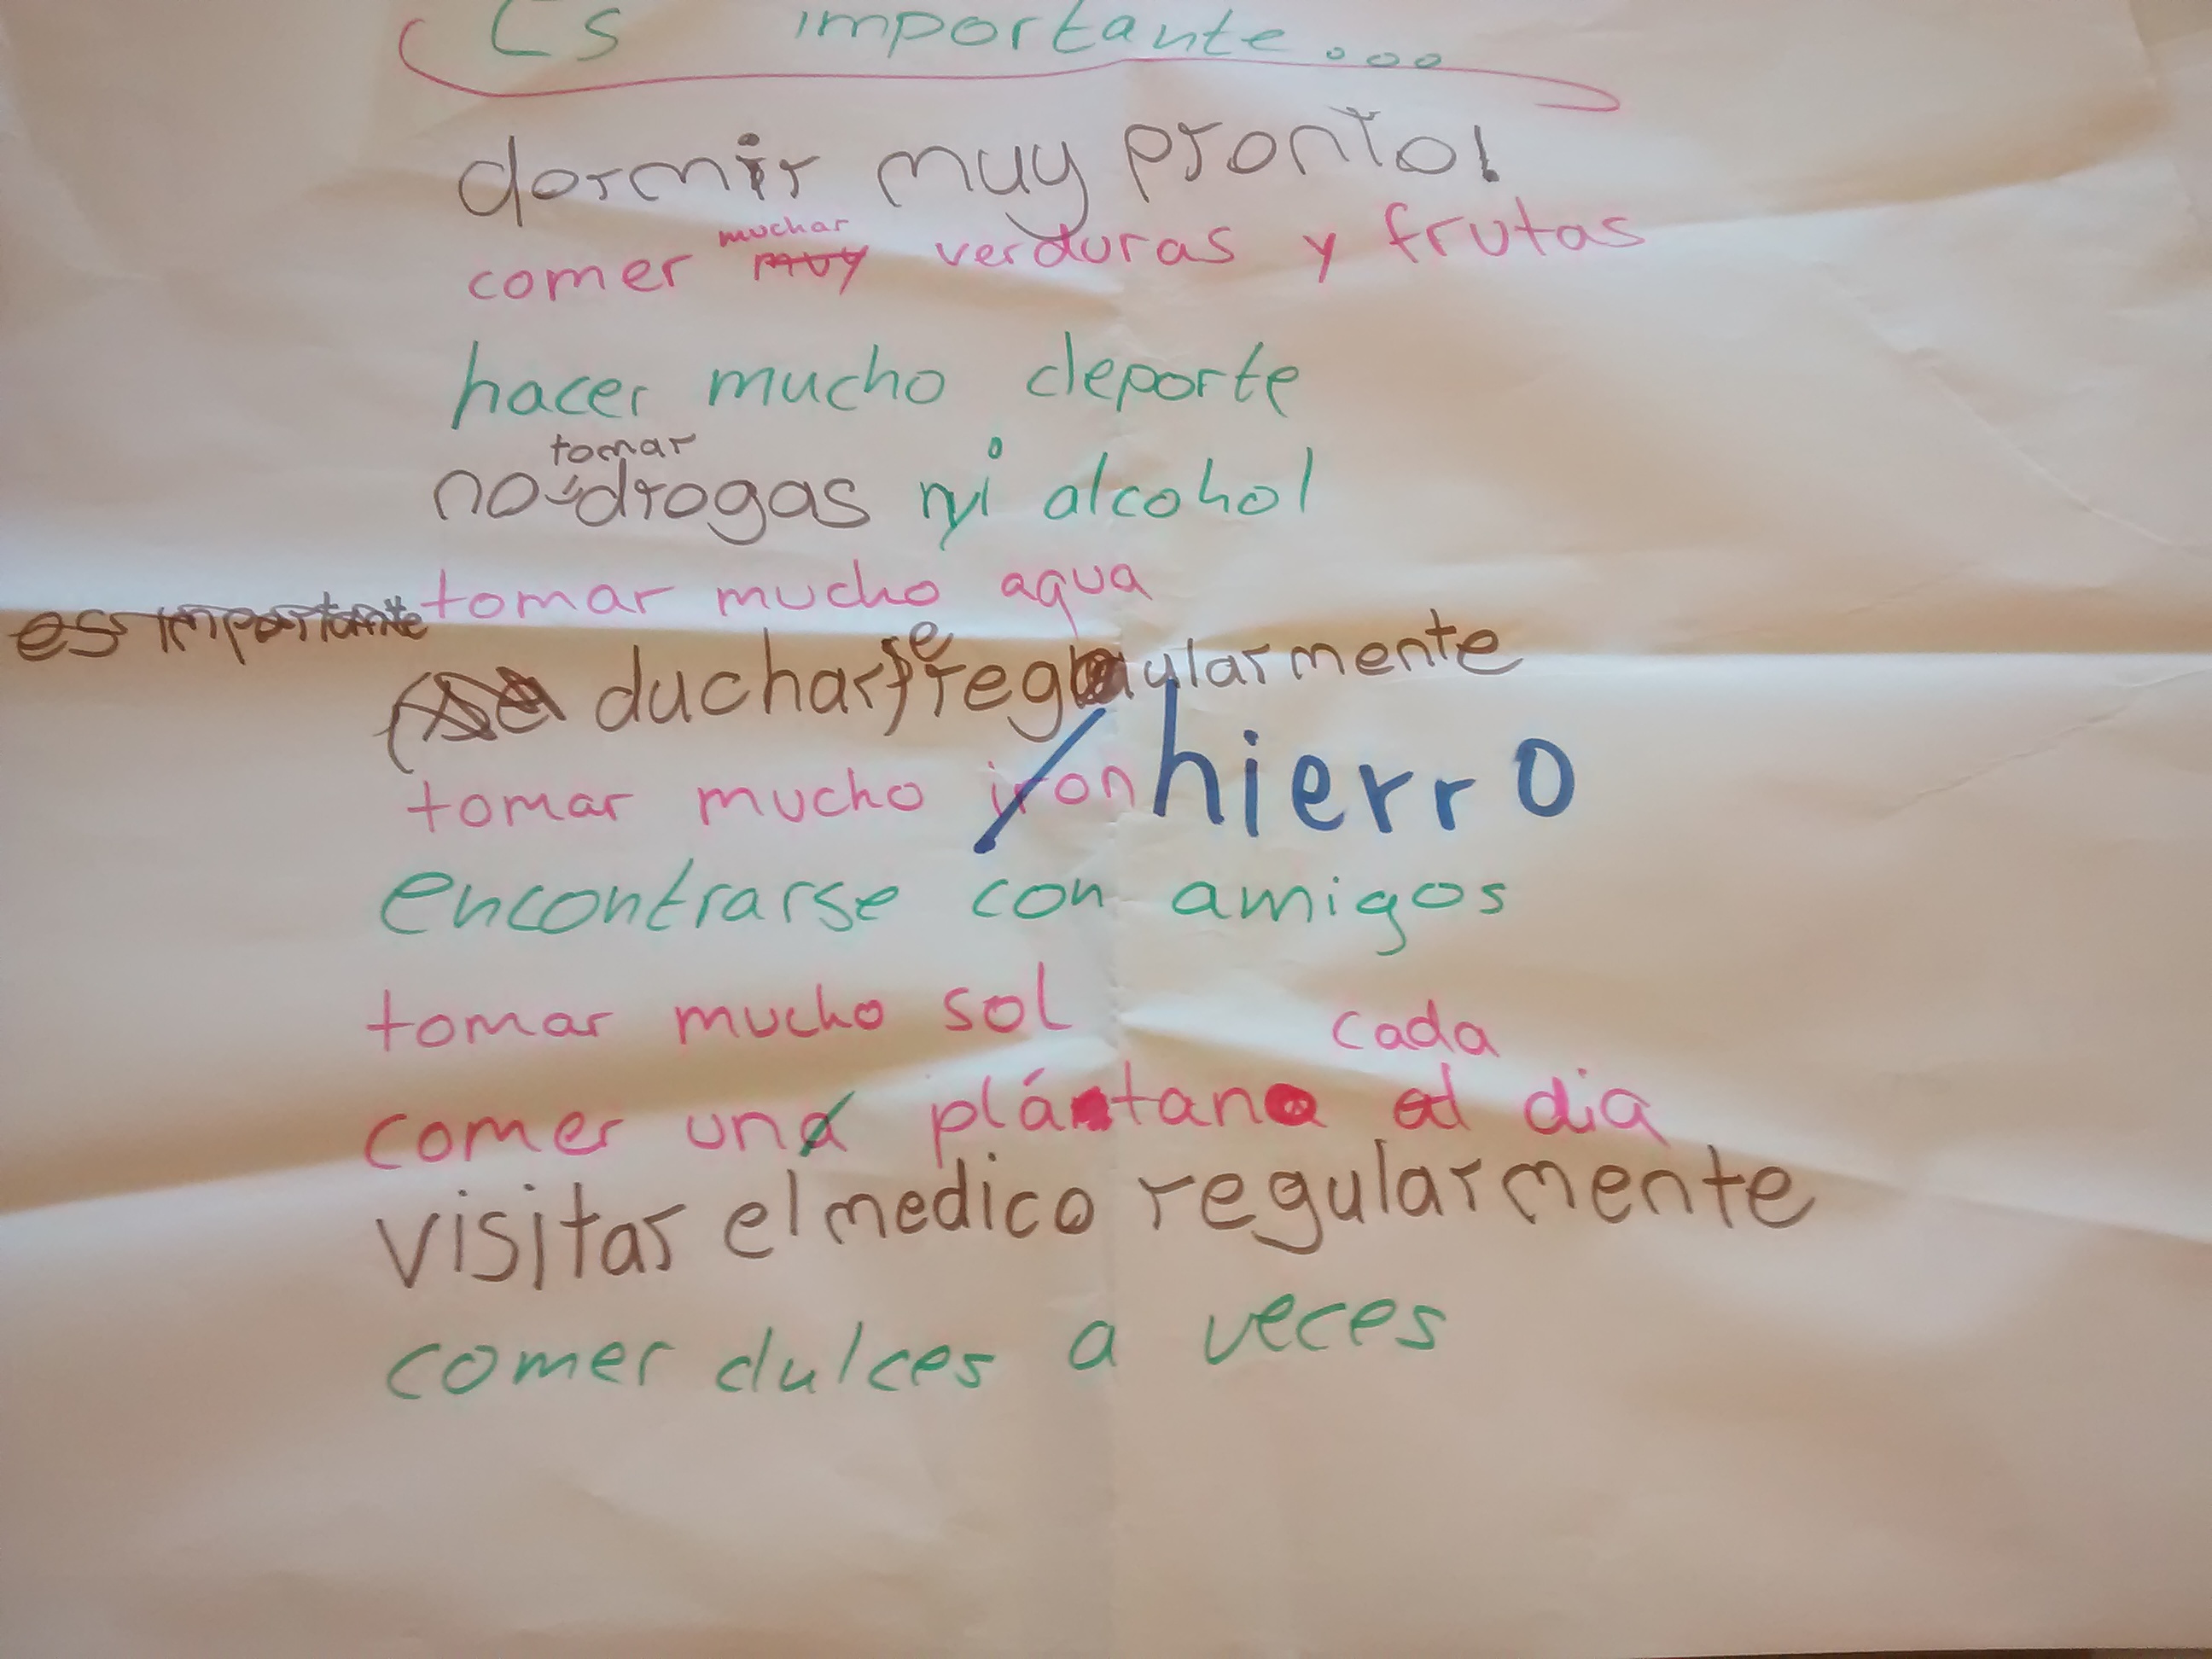 Es importante...
dormir muy pronto!
muchar
comer muy verduras y frutas
hacer mucho deporte
tomar
no drogas ni alcohol
tomar mucho agua
es importante
ducharse regularmente
tomar mucho iron hierro
encontrarse con amigos
tomar mucho sol
cada
comer un plátano al dia
visitar el medico regularmente
comer dulces a veces